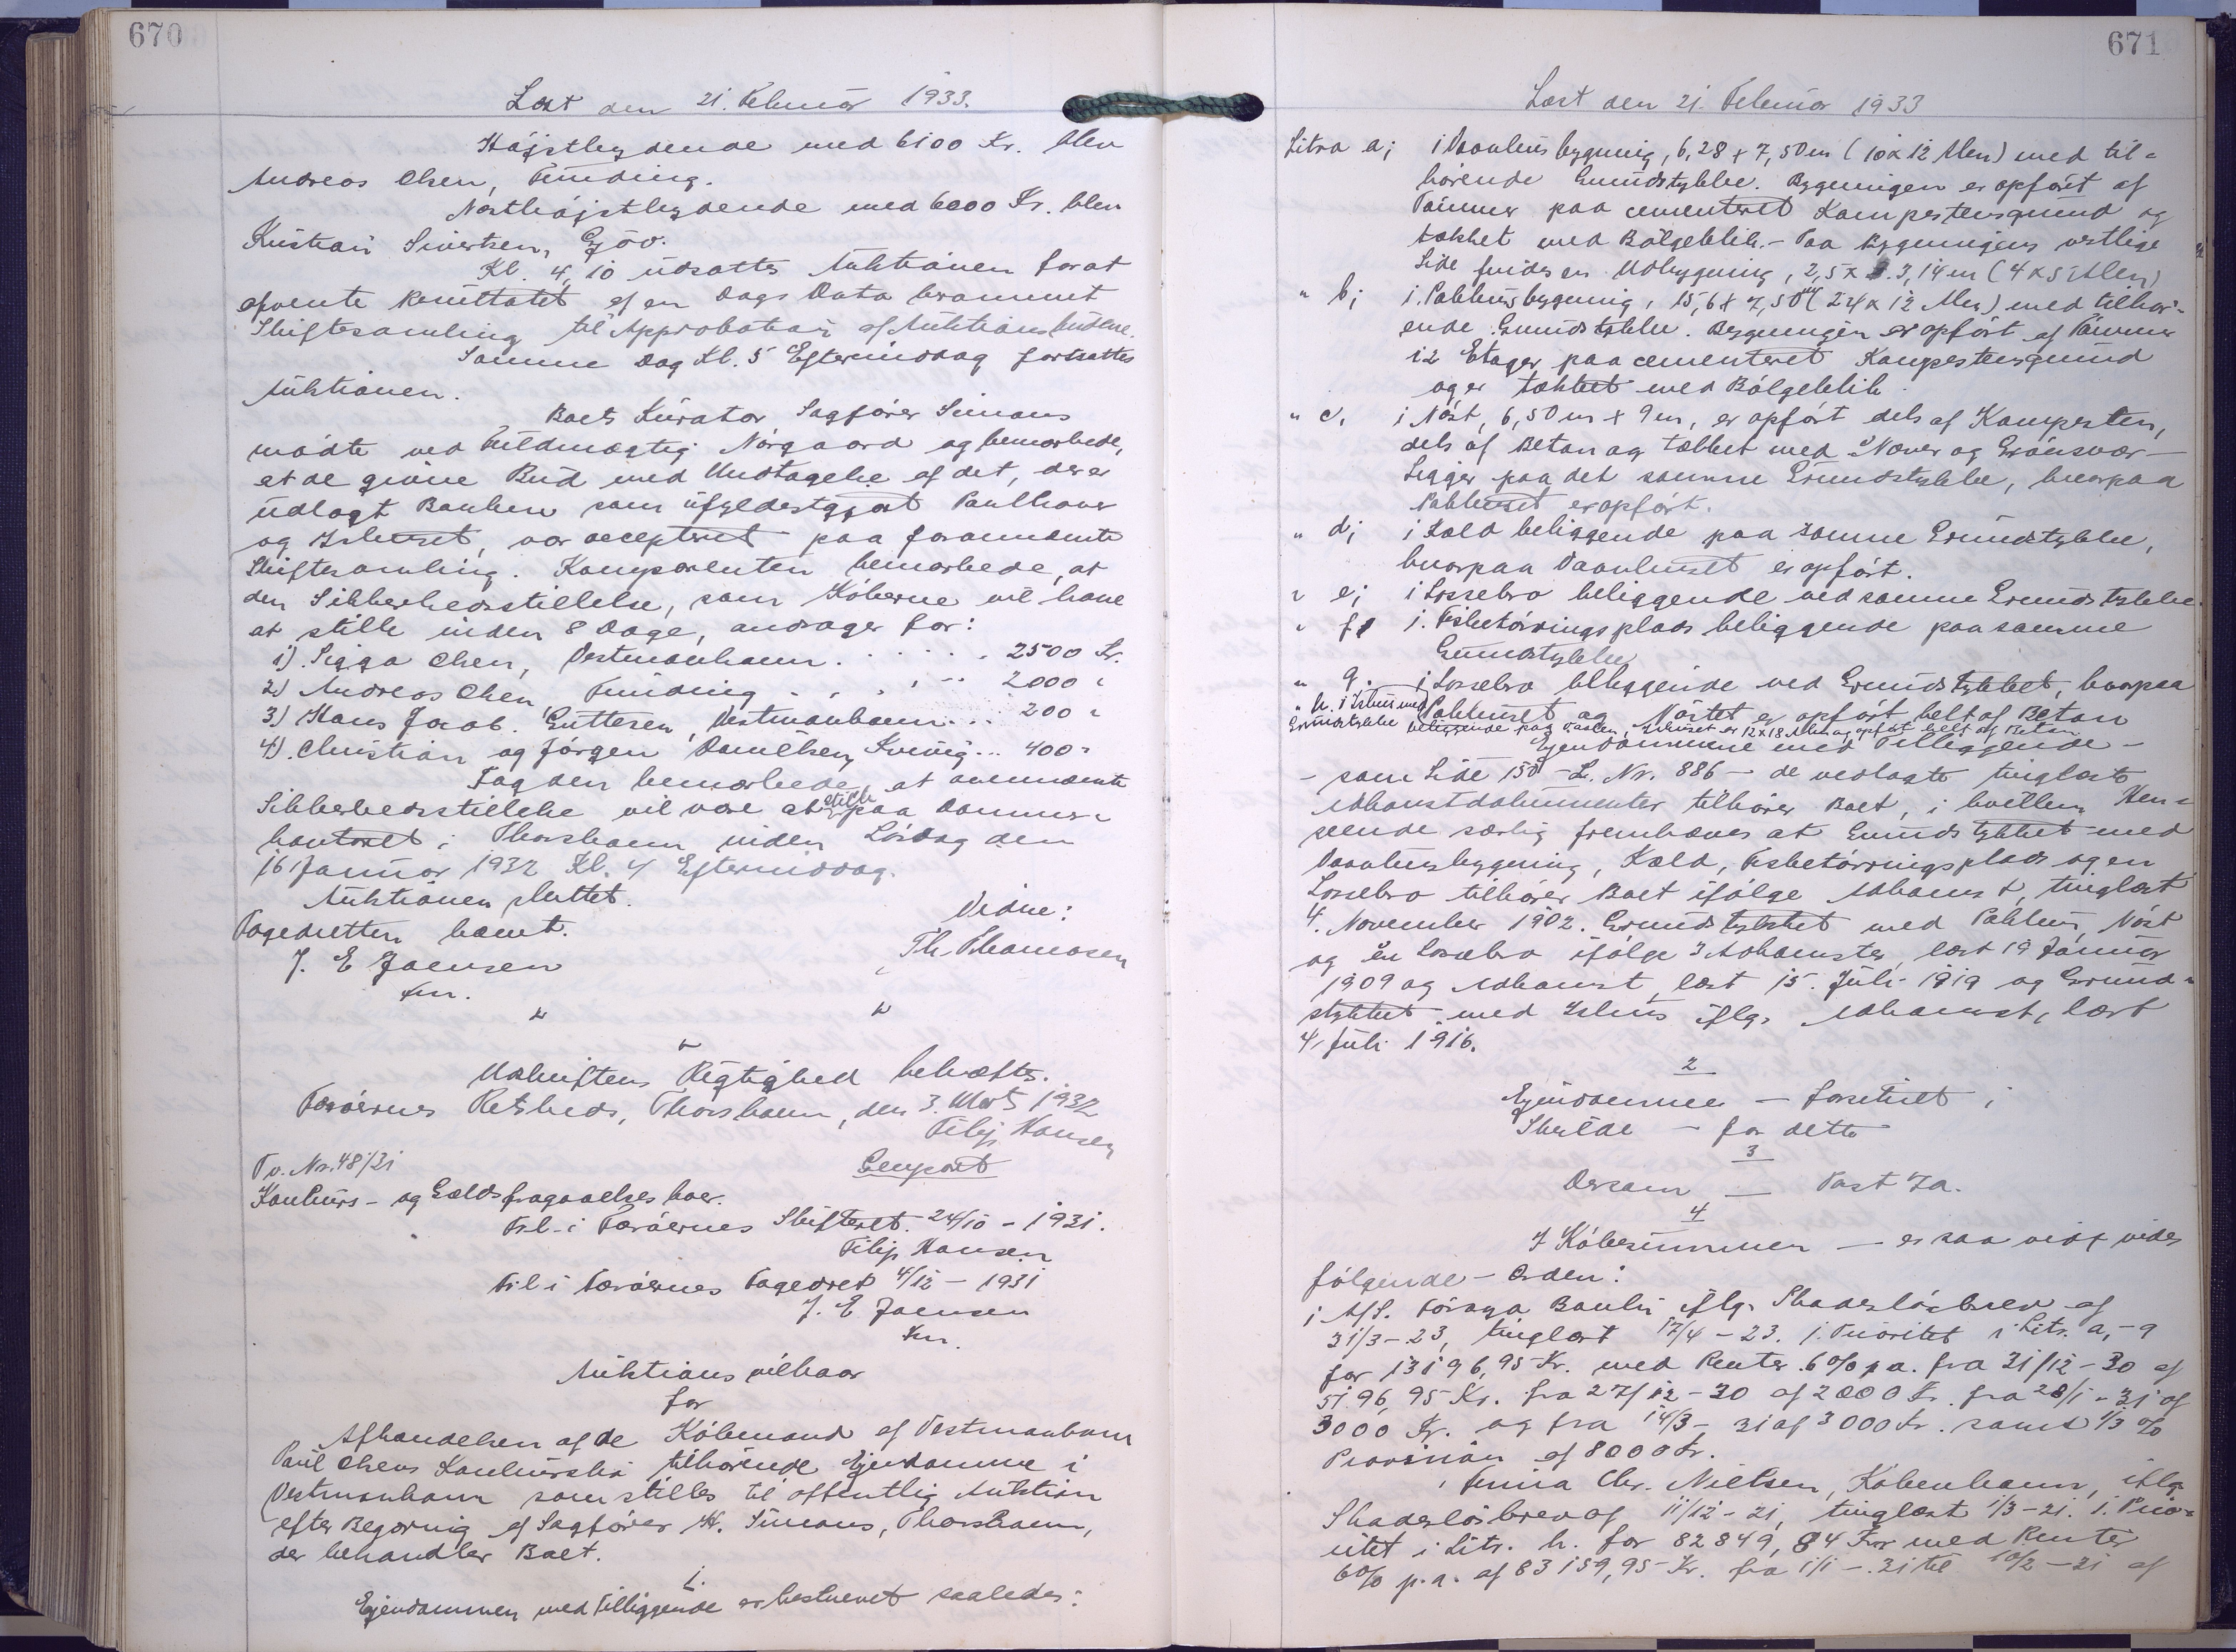 670
Læst den 21. Februar 1933.
Højstbydende med 6100 Kr. blev
Andreas Olsen, Funding.
Næsthøjstbydende med 6000 Kr. blev
Kristian Sivertsen, Gjov.
Kl. 4,10 udsattes Auktionen for at
afvente Resultatet af en Dags Dato berammet
Skiftesamling til Approbation af Auktionsbudene.
Samme Dag Kl. 5 Eftermiddag fortsattes
Auktionen.
Boets Kurator Sagfører Simons
mødte ved Fuldmægtig Nørgaard og bemærkede,
at de givne Bud med Undtagelse af det, der er
udlagt Banken som ufyldestgjort Panthaver
og Ishuset, var accepteret paa forannævnte
Skiftesamling. Komparenten bemærkede, at
den Sikkerhedsstillelse, som Køberne vil have
at stille inden 8 Dage, andrager for:
1). Sigga Olsen, Vestmanhavn . . . . . 2500 Kr.
2) Andreas Olsen, Funding . . . . . 2000 "
3) Hans Jacob Guttesen, Vestmanhavn . . . 200 "
4). Christian og Jørgen Danielsen, Kvivig . . . 400 "
Fogden bemærkede, at ovennævnte
Sikkerhedsstillelse vil være at stille paa Dommer-
kontoret i Thorshavn inden Lørdag den
16 Januar 1932 Kl. 4 Eftermiddag.
Auktionen sluttet.
Fogedretten hævet.
Vidne:
J. E Joensen
Th. Thomasen
km.
" "
"
Udskriftens Rigtighed bekræftes.
Færøernes Retskreds, Thorshavn, den 3. Marts 1932
Filip Hansen
Fo. Nr. 48/31
Genpart
Konkurs- og Gældsfragaaelses boer.
Frl. i Færøernes Skifteret. 24/10 - 1931.
Filip Hansen
Frl i Færøernes Fogedret 4/12 - 1931
J. E Joensen
km.
Auktionsvilkaar
for
Afhændelsen af de Købmand af Vestmanhavn
Poul Olsens Konkursbo tilhørende Ejendomme i
Vestmanhavn som stilles til offentlig Auktion
efter Begæring af Sagfører H. Simons, Thorshavn,
der behandler Boet.
1.
Ejendommen med Tilliggende er beskrevet saaledes:
671
Læst den 21. Februar 1933
Litra a; 1 Vaanhusbygning, 6,28 x 7,50 m (10 x 12 Alen) med til-
hørende Grundstykke. Bygningen er opført af
Tømmer paa cementeret Kampestensgrund og
tækket med Bølgeblik. - Paa Bygningens vestlige
Side findes en Udbygning, 2,5 x 3,14 m (4 x 5 Alen)
" b; 1 Pakhusbygning, 15,6 x 7,50 m (24 x 12 Alen) med tilhør-
ende Grundstykke. Bygningen er opført af Tømmer
i 2 Etager paa cementeret Kampestensgrund
og er tækket med Bølgeblik.
" c. 1 Nøst, 6,50 m x 9 m, er opført dels af Kampesten,
dels af Beton og tækket med Næver og Grønsvær -
Ligger paa det samme Grundstykke, hvorpaa
Pakhuset er opført.
" d; 1 Kæld beliggende paa samme Grundstykke,
hvorpaa Vaanhuset er opført.
" e; 1 Lossebro beliggende ved samme Grundstykke.
" f; 1. Fisketørringsplads beliggende paa samme
Grundstykke
" g. 1 Lossebro beliggende ved Grundstykket, hvorpaa
Pakhuset og Nøstet er opført helt af Beton
" h. 1 Ishus med
Grundstykke beliggende paa Ishuset er 12 x 18 Alen og opført helt af Beton.
Ejendommene med Tilliggende -
- som Side 150 - L. Nr. 886 - de vedlagte tinglæste
Adkomstdokumenter tilhører Boet, i hvilken Hen-
seende særlig fremhæves at Grundstykket med
Vaanhusbygning, Kæld, Fisketørringsplads og en
Lossebro tilhører Boet ifølge Adkomst, tinglæst
4. November 1902. Grundstykket med Pakhus, Nøst
og en Lossebro ifølge 3 Adkomster, læst 19 Januar
1909 og Adkomst, læst 15. Juli 1919 og Grund-
stykket med Ishus iflg. Adkomst, læst
4. Juli 1916.
2
Ejendommen - forsikret i
Skylde - for dette
3
Dersom - Post 7a.
4
I Købesummen - er saa vidt vides
følgende - Orden:
1 A/S. Føroya Banki iflg. Skadesløsbrev af
31/3 - 23, tinglæst 17/4 - 23. 1. Prioritet i Litr. a, - g
for 13196,95 Kr. med Renter 6% p a. fra 31/12 - 30 af
5196,95 Kr. fra 27/12 - 30 af 2000 Kr. fra 28/1 - 31 af
3000 Kr. og fra 14/3 - 31 af 3000 Kr. samt 1/3 %
Provision af 8000 Kr.
Firma Chr. Nielsen, København, iflg.
Skadesløsbrev af 11/12 - 21, tinglæst 1/3 - 21. 1. Prio-
ritet i Litr. h. for 82849,84 Kr. med Renter
6% p. a. af 83159,95 Kr. fra 1/1 - 31 til 10/2 - 21 af